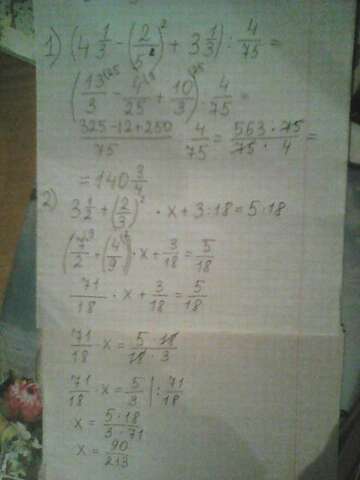 1) (4 1/3 - (2/5)² + 3 1/3) : 4/75 =
(13/3 - 4/25 + 10/3) : 4/75 =
325-12+250/75 : 4/75 = 563·75/75·4 =
= 140 3/4
2) 3 1/2 + (2/3)² · x + 3·18 = 5·18
(7/2 + (4/9)) · x + 3/18 = 5/18
71/18 · x + 3/18 = 5/18
71/18 · x = 5·18/18·3
71/18 · x = 5/3 | : 71/18
x = 5·18/3·71
x = 90/213